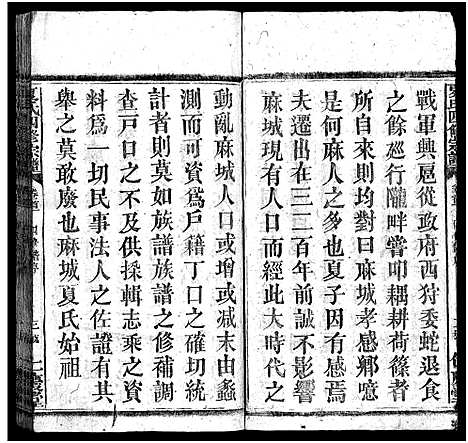 戰軍興扈從政府西狩委蛇退食
之餘巡行隴畔嘗叩耦耕荷篠者
所自來則均對曰麻城孝感鄉噫
是何麻人之多也夏子因有感焉
夫遷出在三二百年前誠不影響
麻城現有人口而此大時代之
動亂麻城人口或增或減末由蠡
測而可資爲戶籍丁口之確切統
計者則莫如族譜族譜之修補調
查戶口之不及供採輯志乘之資
料爲一切民事法人之佐證譜之
舉之莫敢廢也麻城夏氏始祖
夏氏四修家譜